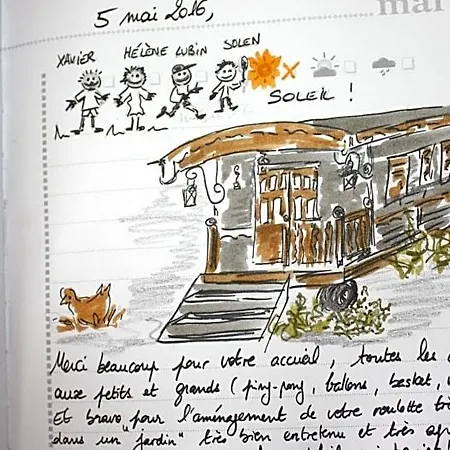 mai
5 mai 2016,
XAVIER HÉLÈNE LUBIN SOLEN
SOLEIL !
Merci beaucoup pour votre accueil, toutes les
aux petits et grands (ping-pong, ballons, basket,
Et bravo pour l'aménagement de votre roulotte
dans un "jardin" très bien entretenu et très